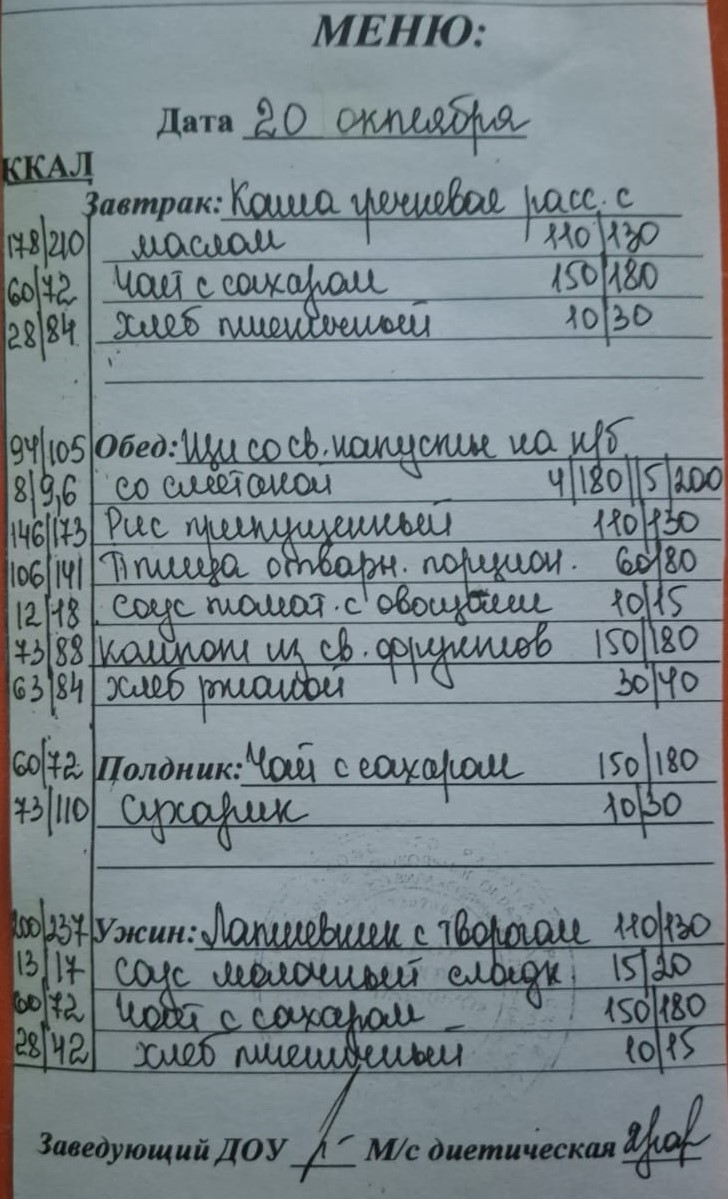 МЕНЮ:
Дата 20 октября
ККАЛ
Завтрак: Каша гречневая расс. с
178/210 маслом 110/130
60/72 Чай с сахаром 150/180
28/84 Хлеб пшеничный 10/30
94/105 Обед: Щи со св. капусты на к/б
8/9,6 со сметаной 4/180//5/200
146/173 Рис припущенный 110/130
106/141 Птица отварн. порцион. 60/80
12/18 Соус томат. с овощами 10/15
73/88 компот из св. фруктов 150/180
63/84 хлеб ржаной 30/40
60/72 Полдник: Чай с сахаром 150/180
73/110 Сухарик 10/30
200/237 Ужин: Лапшевник с творогом 110/130
13/17 Соус молочный сладк. 15/20
60/72 Чай с сахаром 150/180
28/42 Хлеб пшеничный 10/15
Заведующий ДОУ М/с диетическая